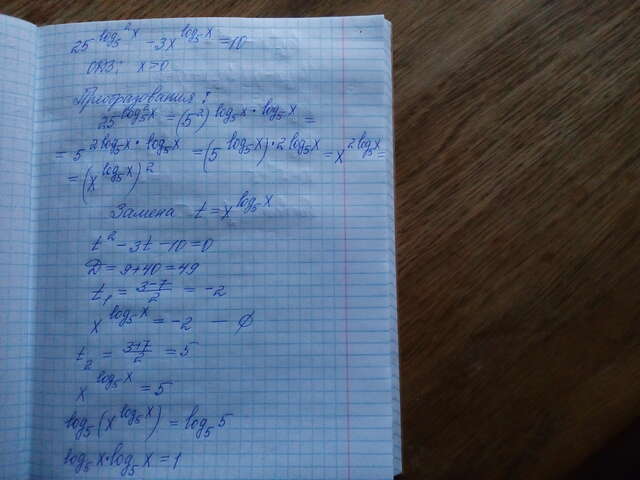 25^(log₅²x) - 3x^(log₅x) = 10
ОДЗ: x>0
Преобразования:
25^(log₅²x) = (5²)^(log₅x · log₅x) =
= 5^(2log₅x · log₅x) = (5^(log₅x))^(·2log₅x) = x^(2log₅x) =
= (x^(log₅x))²
Замена t = x^(log₅x)
t² - 3t - 10 = 0
D = 9+40 = 49
t₁ = (3-7)/2 = -2
x^(log₅x) = -2 — ∅
t₂ = (3+7)/2 = 5
x^(log₅x) = 5
log₅(x^(log₅x)) = log₅5
log₅x · log₅x = 1